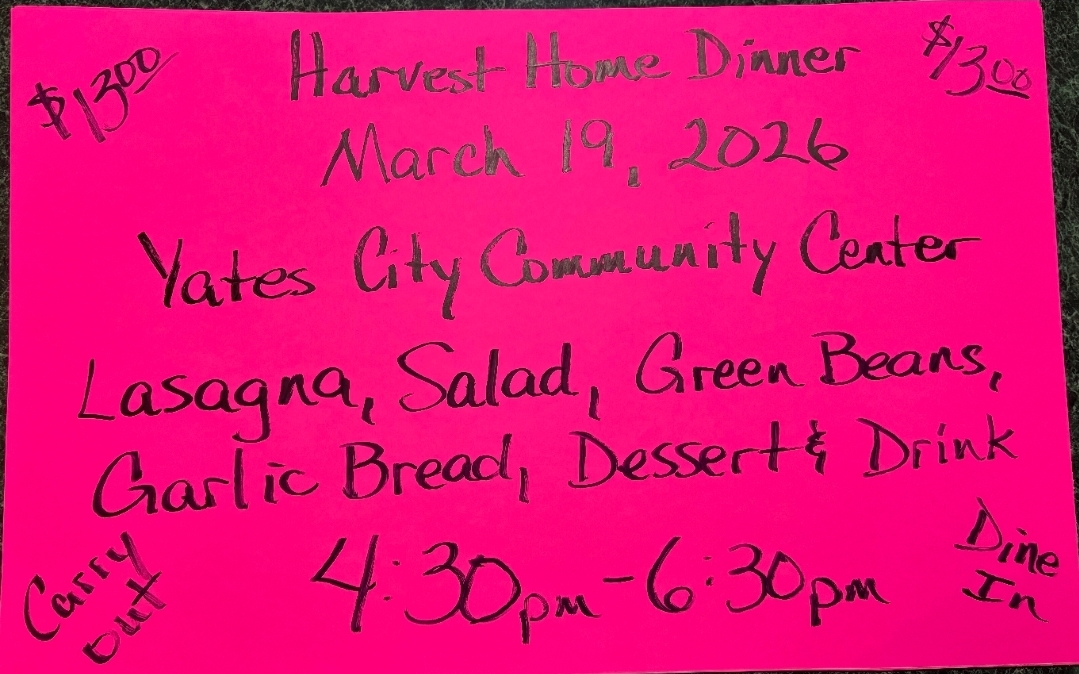 $13.00
Harvest Home Dinner
$13.00
March 19, 2026
Yates City Community Center
Lasagna, Salad, Green Beans,
Garlic Bread, Dessert & Drink
Carry
out
4:30pm-6:30pm
Dine
In